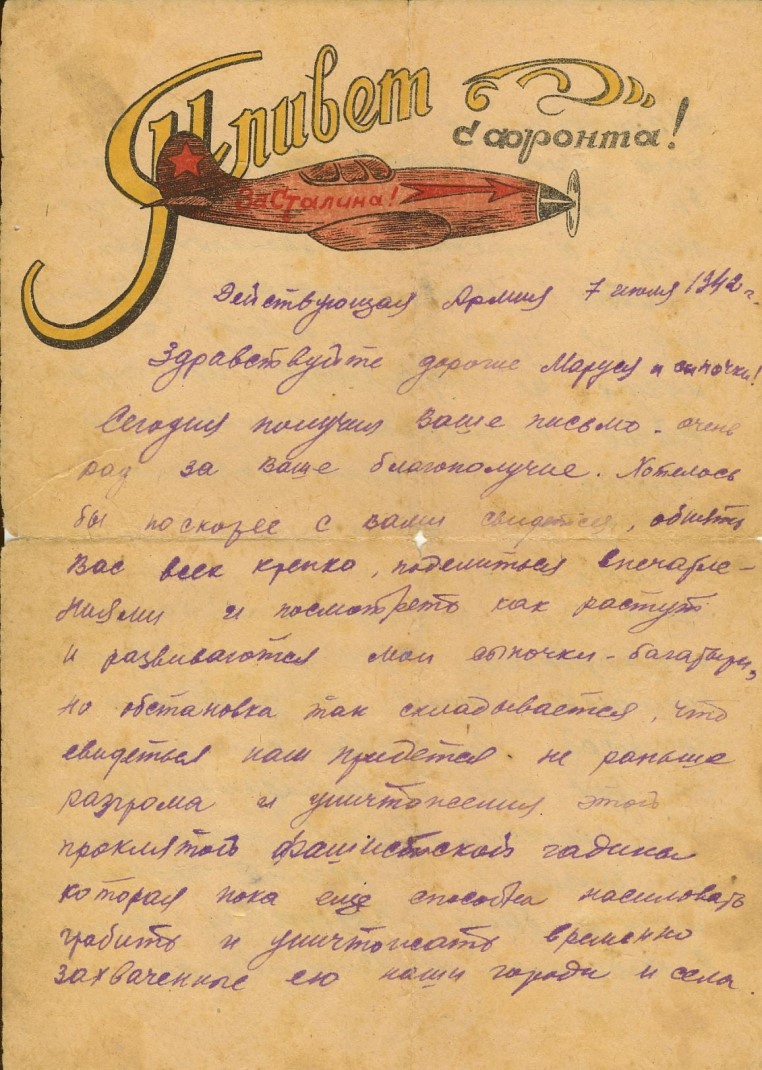 Привет
с фронта!
За Сталина!
Действующая Армия 7 июля 1942 г.
Здравствуйте дорогие Маруся и сыночки!
Сегодня получил Ваше письмо. очень
рад за ваше благополучие. Хотелось
бы поскорее с вами свидется, обнять
Вас всех крепко, поделиться впечатле-
ниями и посмотреть как растут
и развиваются мои сыночки-багатыри,
но обстановка так складывается, что
свидеться нам придется не раньше
разгрома и уничтожения этой
проклятой фашистской гадины
которая пока еще способна насиловать
грабить и уничтожать временно
захваченные ею наши города и села.